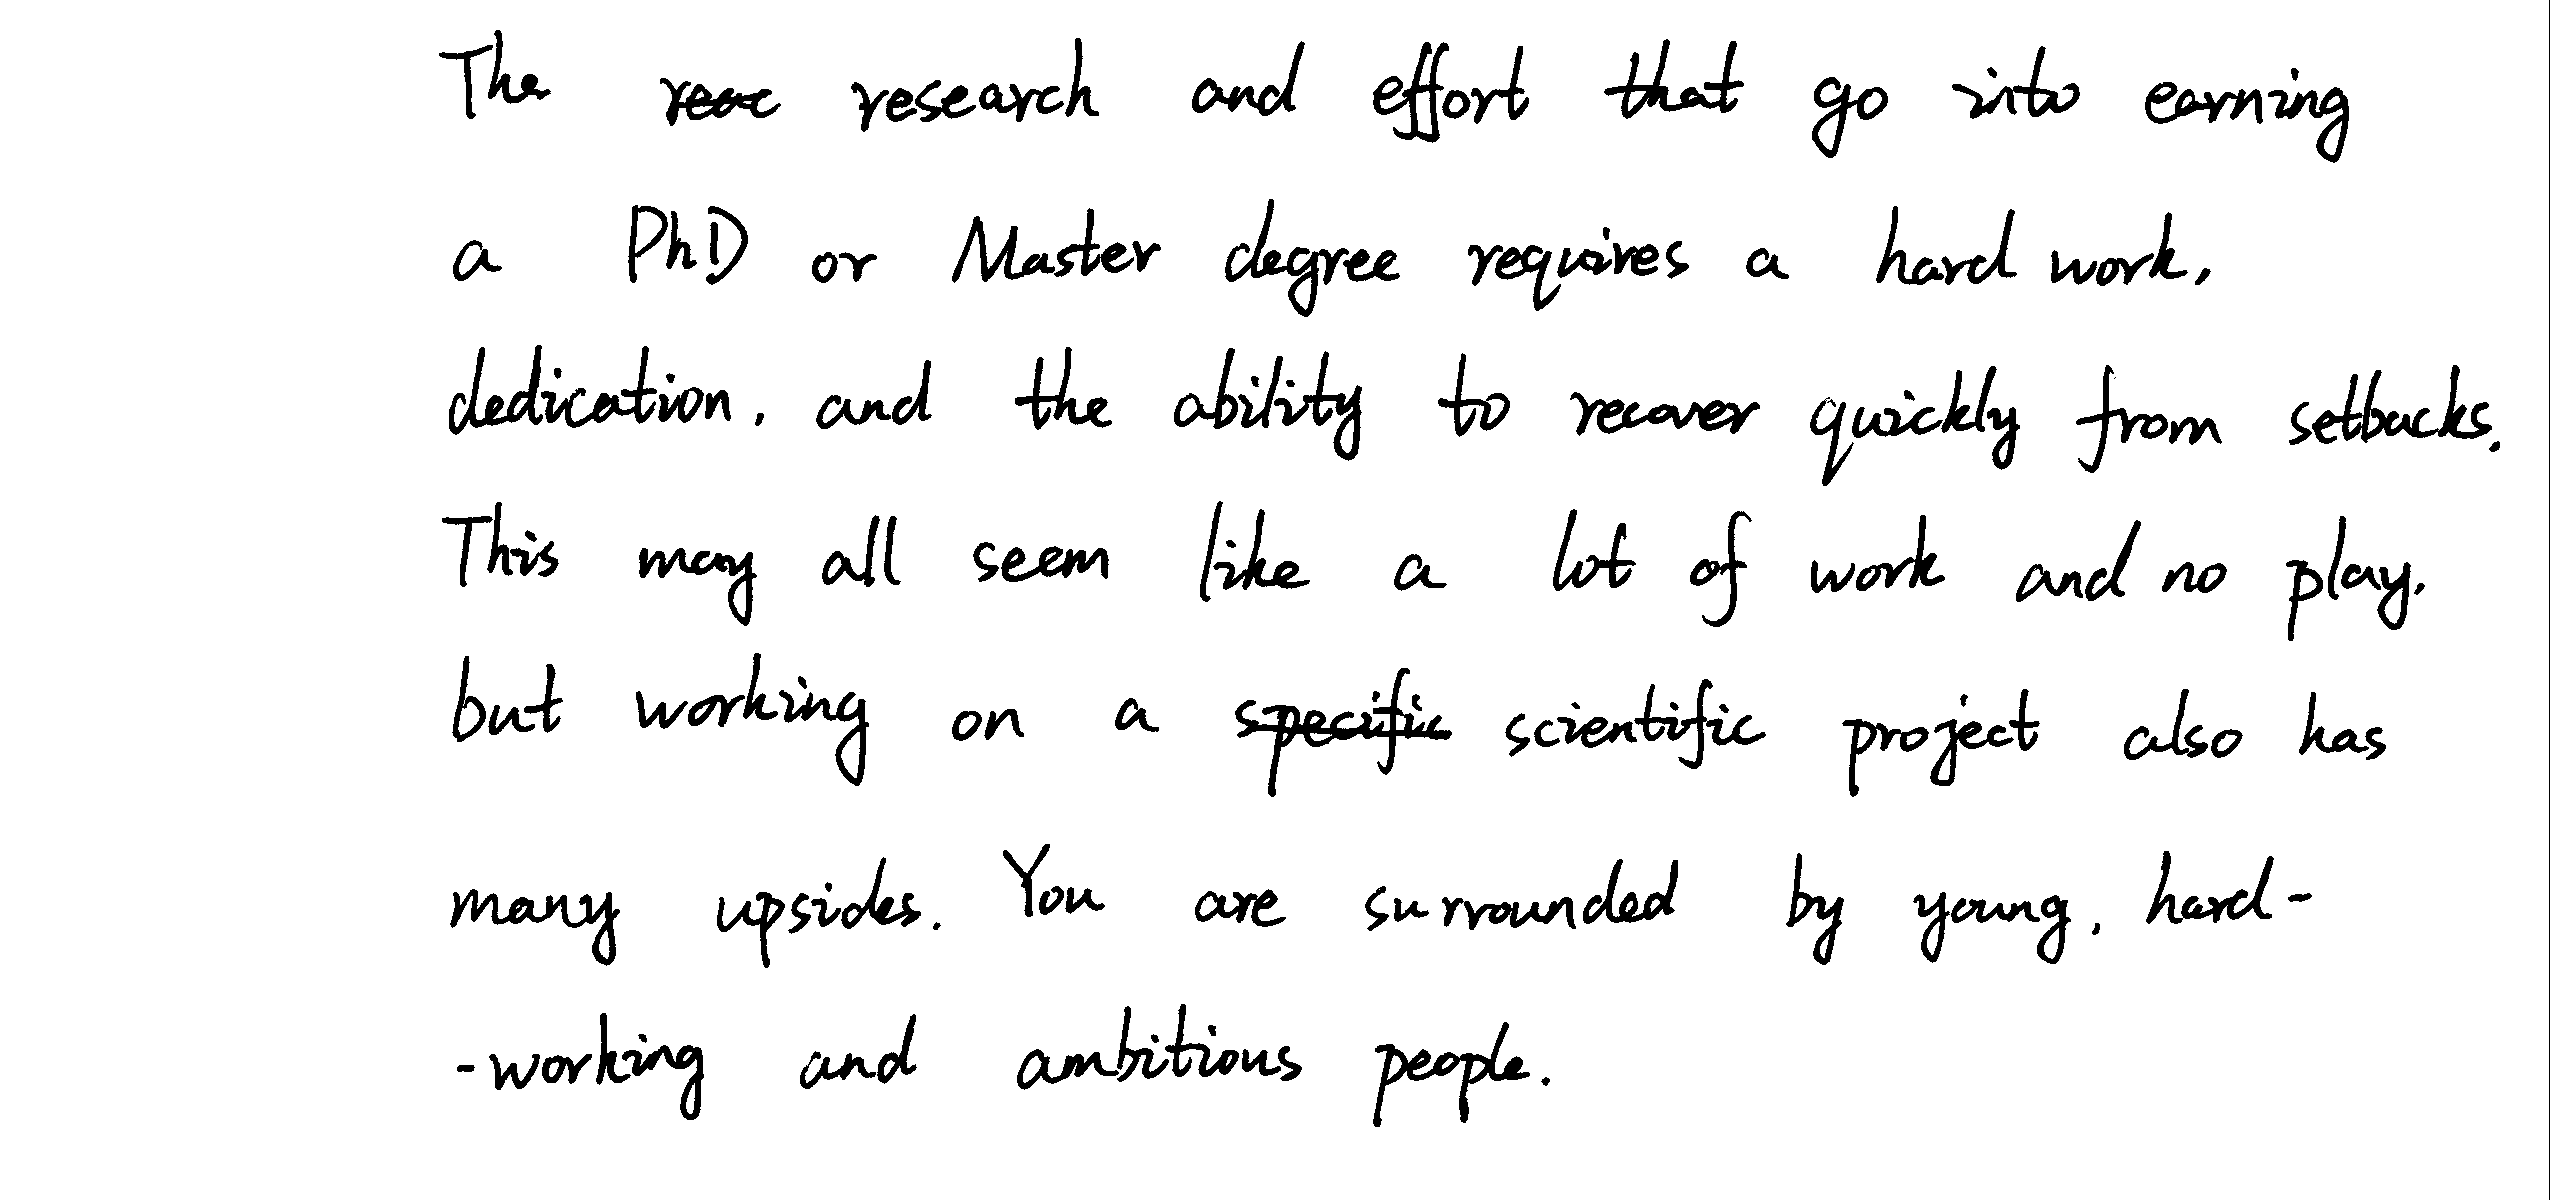 The research and effort that go into earning
a PhD or Master degree requires a hard work,
dedication, and the ability to recover quickly from setbacks.
This may all seem like a lot of work and no play,
but working on a specific scientific project also has
many upsides. You are surrounded by young, hard-
-working and ambitious people.